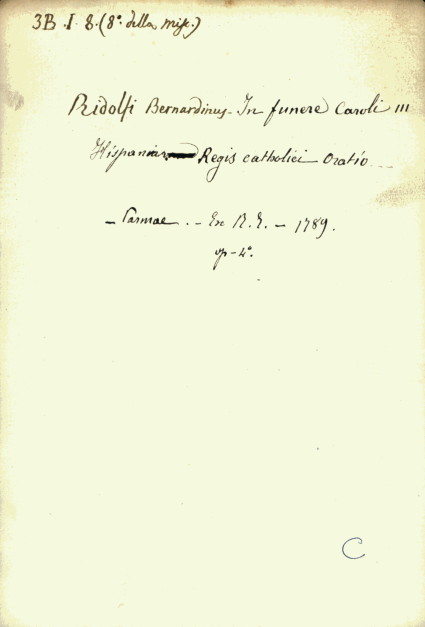 3B . I . 8. (8º della misc.)
Ridolfi Bernardinus - In funere Caroli III
Hispaniar Regis catholici Oratio
- Parmae . - Ex R. T. - 1789.
op - 4º.
C